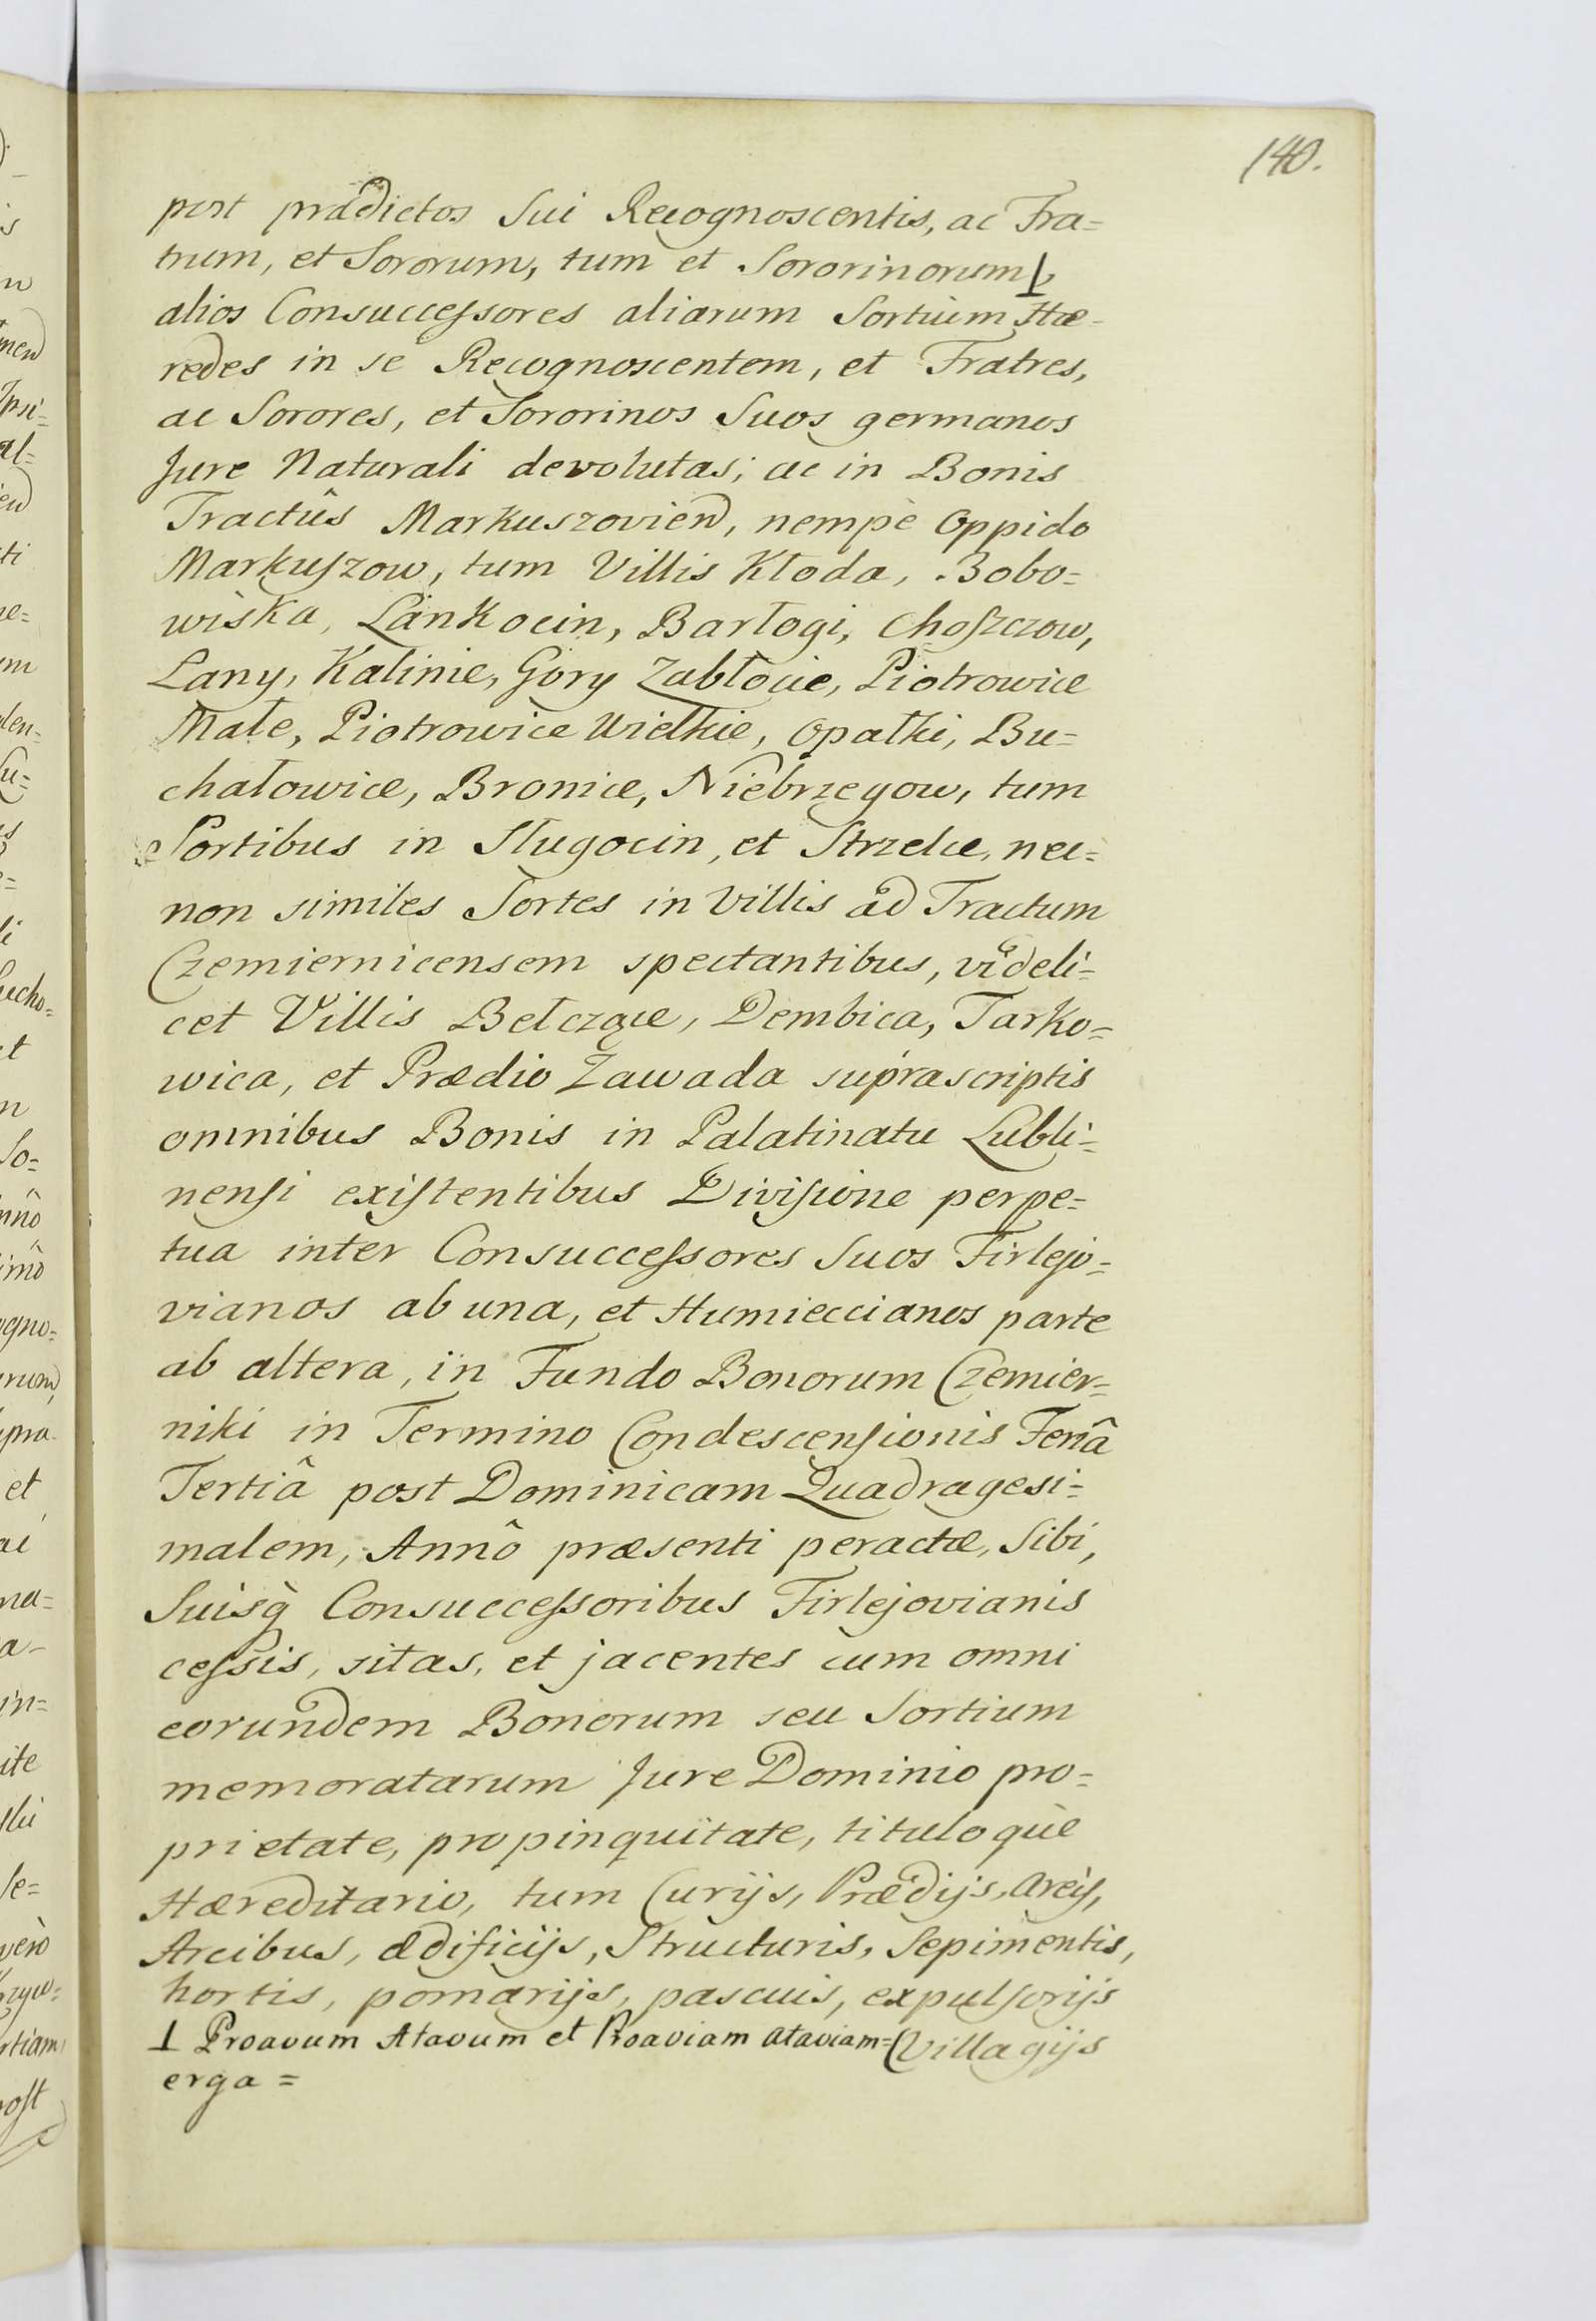 140.
post prædictos Sui Recognoscentis, ac Fra=
trum, et Sororum, tum et Sororinorum ⊥,
alios Consuccessores aliarum Sortium Hæ=
redes in se Recognoscentem, et Fratres,
ac Sorores, et Sororinos Suos germanos
Jure Naturali devolutas; ac in Bonis
Tractûs Markuszovien, nempè Oppido
Markuszow, tum Villis Kłoda, Bobo=
wiska, Lànkocin, Barłogi, Choszczow,
Lany, Kalinie, Gory Zabłocie, Piotrowice
Małe, Piotrowice Wielkie, Opatki, Bu=
chałowice, Bronice, Niebrzegow, tum
Sortibus in Sługocin, et Strzelce, nec=
non similes Sortes in Villis ad Tractum
Czemiernicensem spectantibus, videli=
cet Villis Bełczące, Dembica, Tarko=
wica, et Prædio Zawada suprascriptis
omnibus Bonis in Palatinatu Lubli=
nensi existentibus Divisione perpe=
tua inter Consuccessores Suos Firlejo=
vianos ab una, et Humieccianos parte
ab altera, in Fundo Bonorum Czemier=
niki in Termino Condescensionis Feriâ
Tertiâ post Dominicam Quadragesi=
malem, Annô præsenti peractæ, Sibi,
Suisq̀ Consuccessoribus Firlejovianis
cessis, sitas, et jacentes cum omni
eorundem Bonorum seu Sortium
memoratarum Jure Dominio pro=
prietate, propinquitate, tituloquè
Hæreditario, tum Curijs, Prædijs, Areis,
Arcibus, ædificijs, Structuris, Sepimentis,
hortis, pomarijs, pascuis, expulsorijs
Villagijs
⊥ Proavum Atavum et Proaviam Ataviam=
erga=